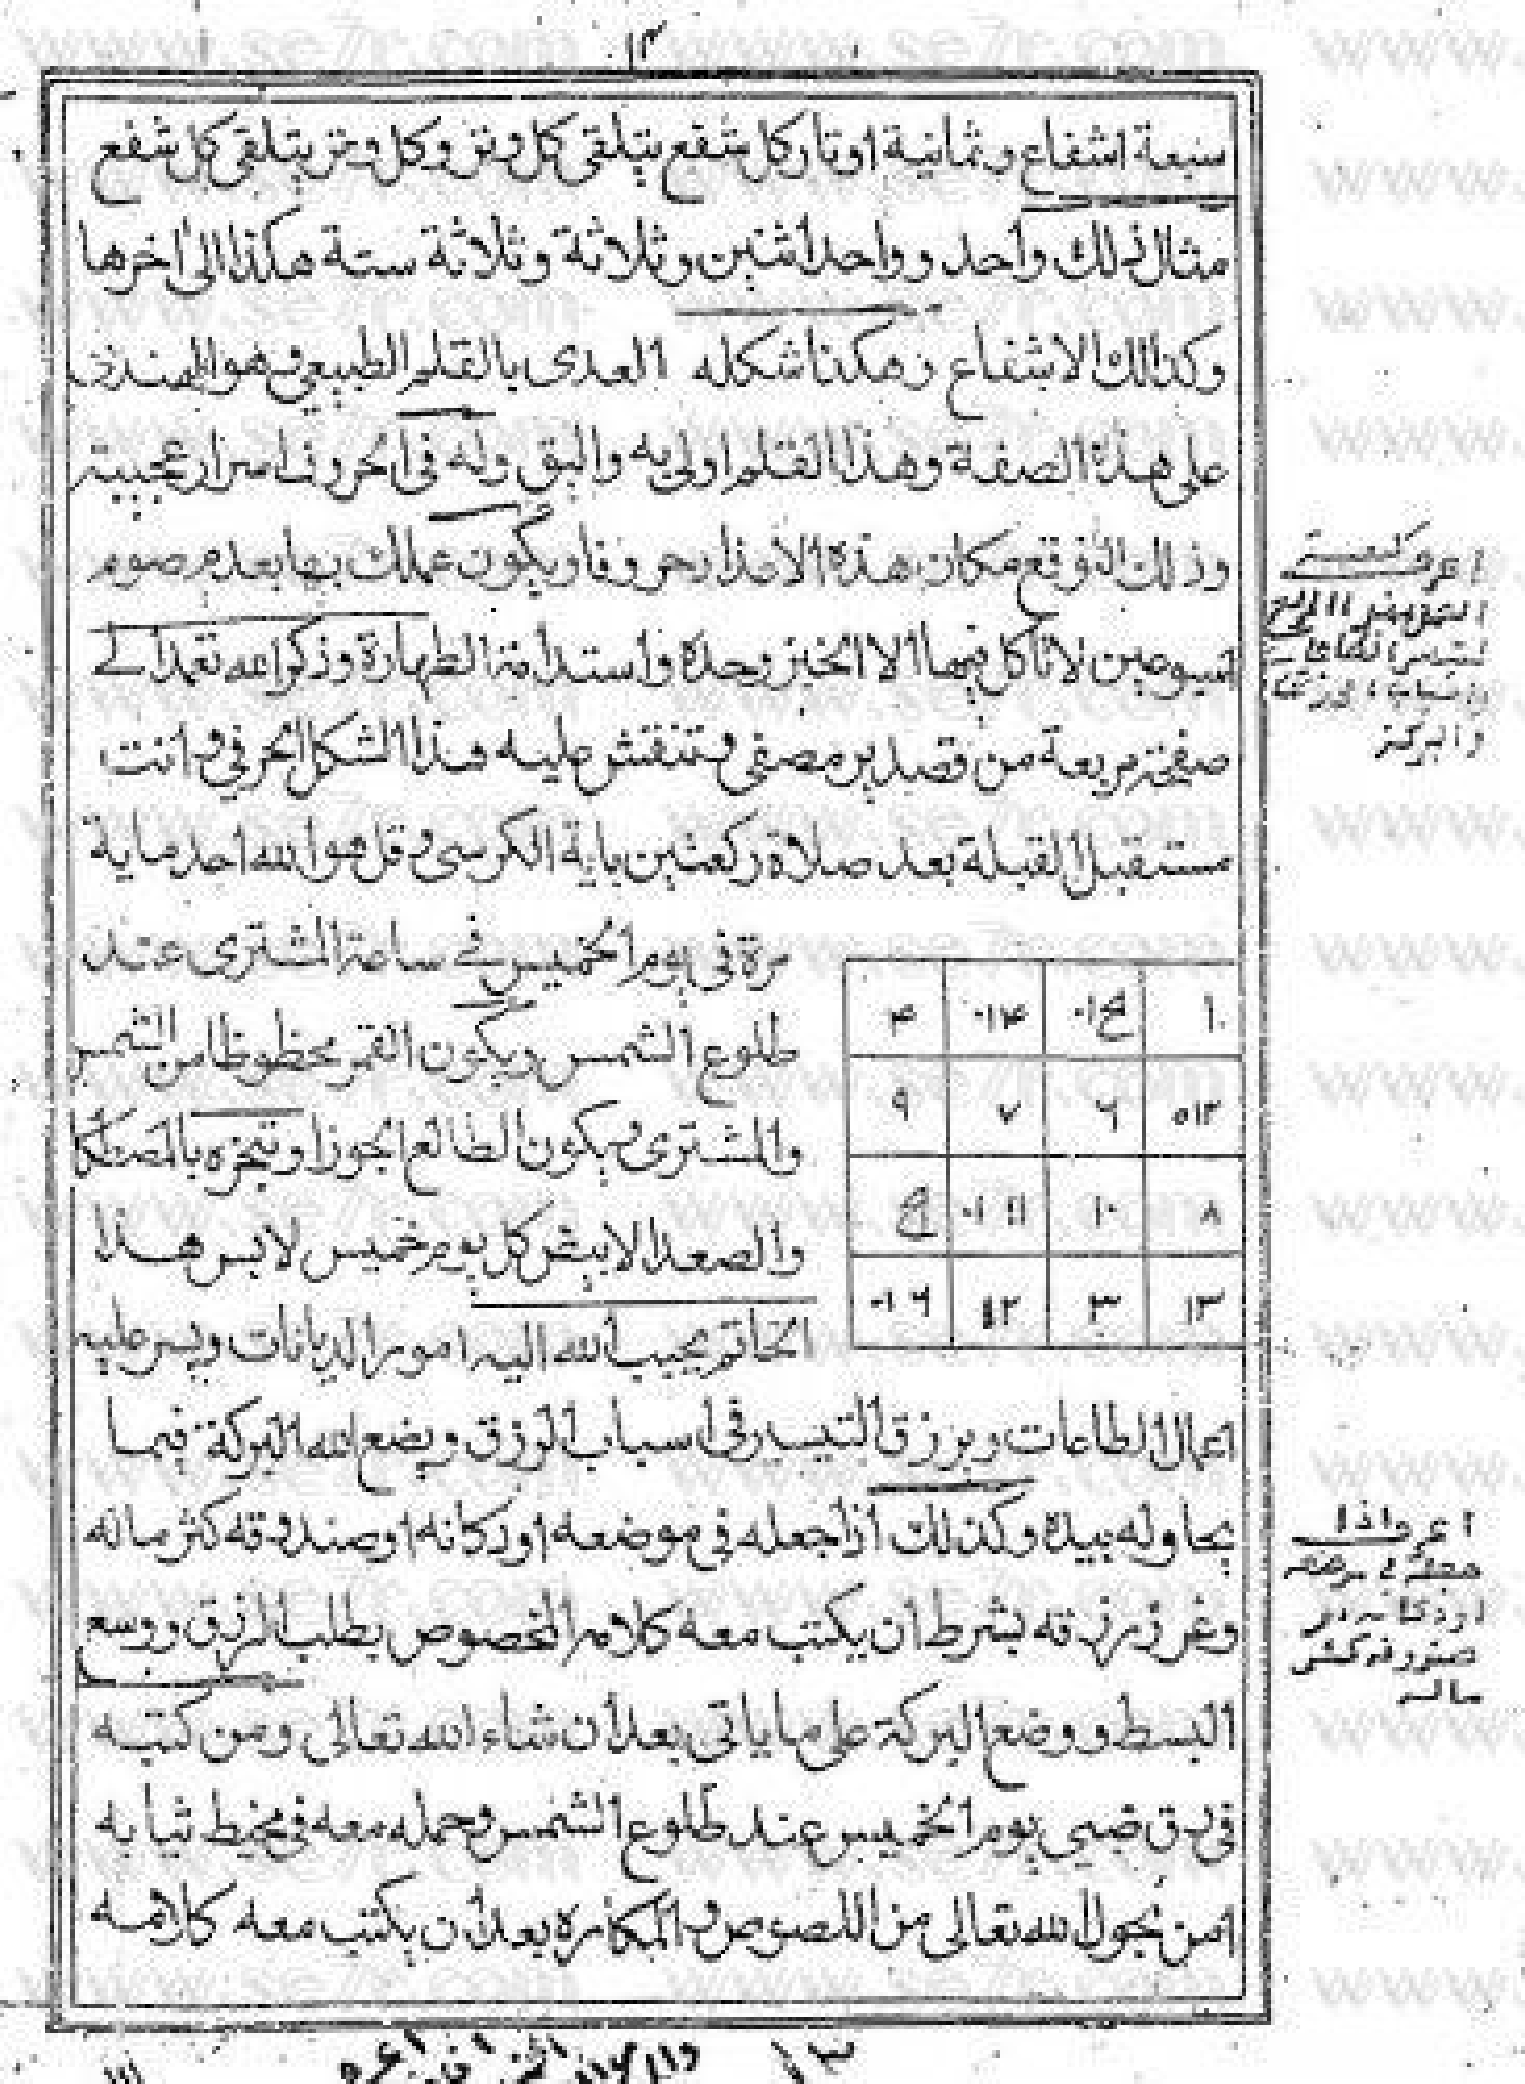 ١٣
سبعة اشفاع وثمانية اوتار كل شفع يتلقى كل وتر وكل وتر يتلقى كل شفع
مثال ذلك واحد وواحد اثنين وثلاثة وثلاثة ستة هكذا الى اخرها
وكذلك الاشفاع وهكذا شكله العددى بالقلم الطبيعى وهو الهندى
على هذه الصفة وهذا القلم اولى به واليق وله فى الحروف اسرار عجيبة
وذلك ان توقع مكان هذه الاعداد حروفا ويكون عملك بها بعد صوم
اسبوعين لا تأكل فيهما الا الخبز وحده واستدامة الطهارة وذكر الله تعمد الى
صفيحة مربعة من قصدير مصفى وتنقش عليه هذا الشكل الحرفى وانت
مستقبل القبلة بعد صلاة ركعتين باية الكرسى وقل هو الله احد ماية
مرة فى يوم الخميس فى ساعة المشترى عند
طلوع الشمس ويكون القمر محظوظا من الشمس
والمشترى ويكون الطالع الجوزا وتبخره بالمصطكا
والصعدل الابيض كل يوم خميس لابس هذا
الخاتم يحبب الله اليه امور الديانات ويسر عليه
١ ١٤ ٤
٩ ٧ ٦ ١٢
٨ ١٠ ١١
١٣ ٣ ٢ ١٦
اعمال الطاعات ويرزق التيسير فى اسباب الرزق ويضع الله البركة فيما
يحاوله بيده وكذلك اذا جعله فى موضعه او دكانه او صندوقه كثر ماله
وغزر رزقه بشرط ان يكتب معه كلامه المخصوص بطلب الرزق ووسع
البسط ووضع البركة على ما ياتى بعد ان شاء الله تعالى ومن كتبه
فى رق ضبى يوم الخميس عند طلوع الشمس وحمله معه فى مخيط ثيابه
امن بحول الله تعالى من اللصوص والمكاره بعد ان يكتب معه كلامه
والبركة
اعرف اذا
جعله فى موضعه
او دكانه او
صندوقه كثر
ماله
١٣